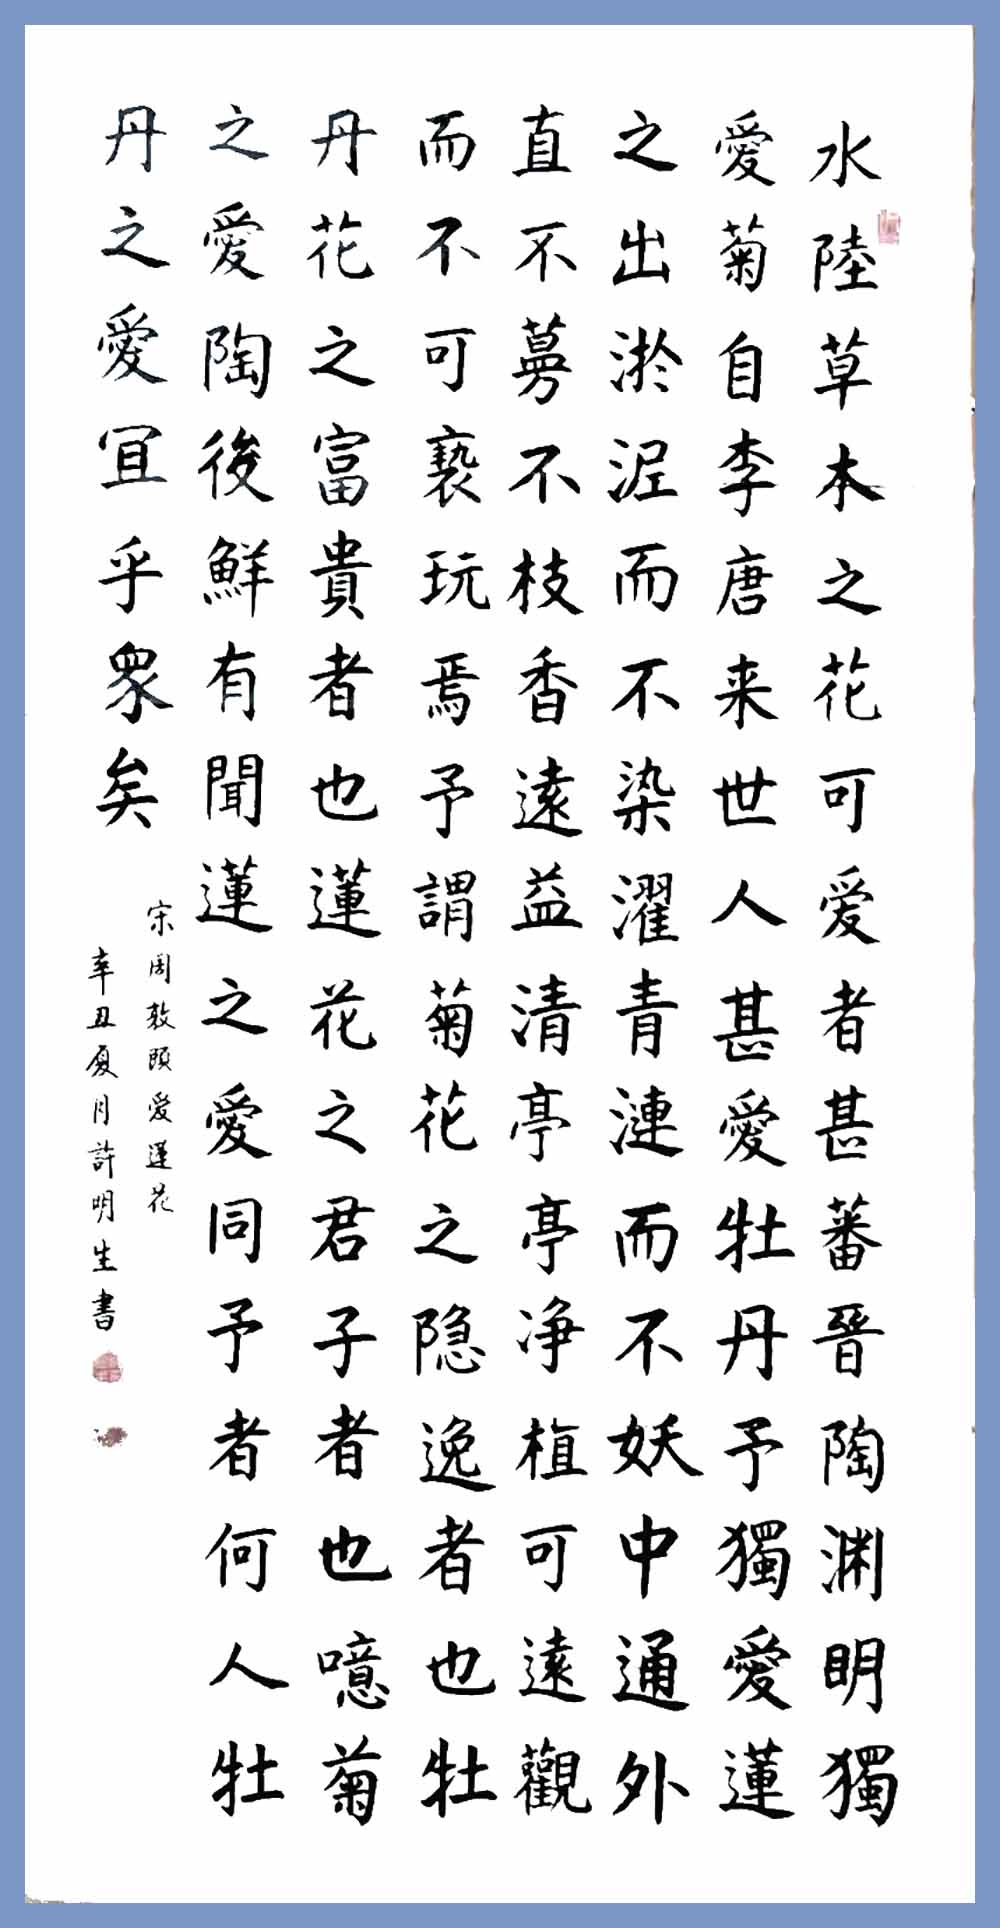 水陸草本之花可爱者甚蕃晉陶渊明獨
愛菊自李唐来世人甚愛牡丹予獨愛蓮
之出淤泥而不染濯青漣而不妖中通外
直不蔓不枝香遠益清亭亭净植可遠觀
而不可亵玩焉予謂菊花之隐逸者也牡
丹花之富貴者也蓮花之君子者也噫菊
之愛陶後鮮有聞蓮之愛同予者何人牡
丹之愛宜乎眾矣
宋周敦頤爱蓮花
辛丑夏月許明生書